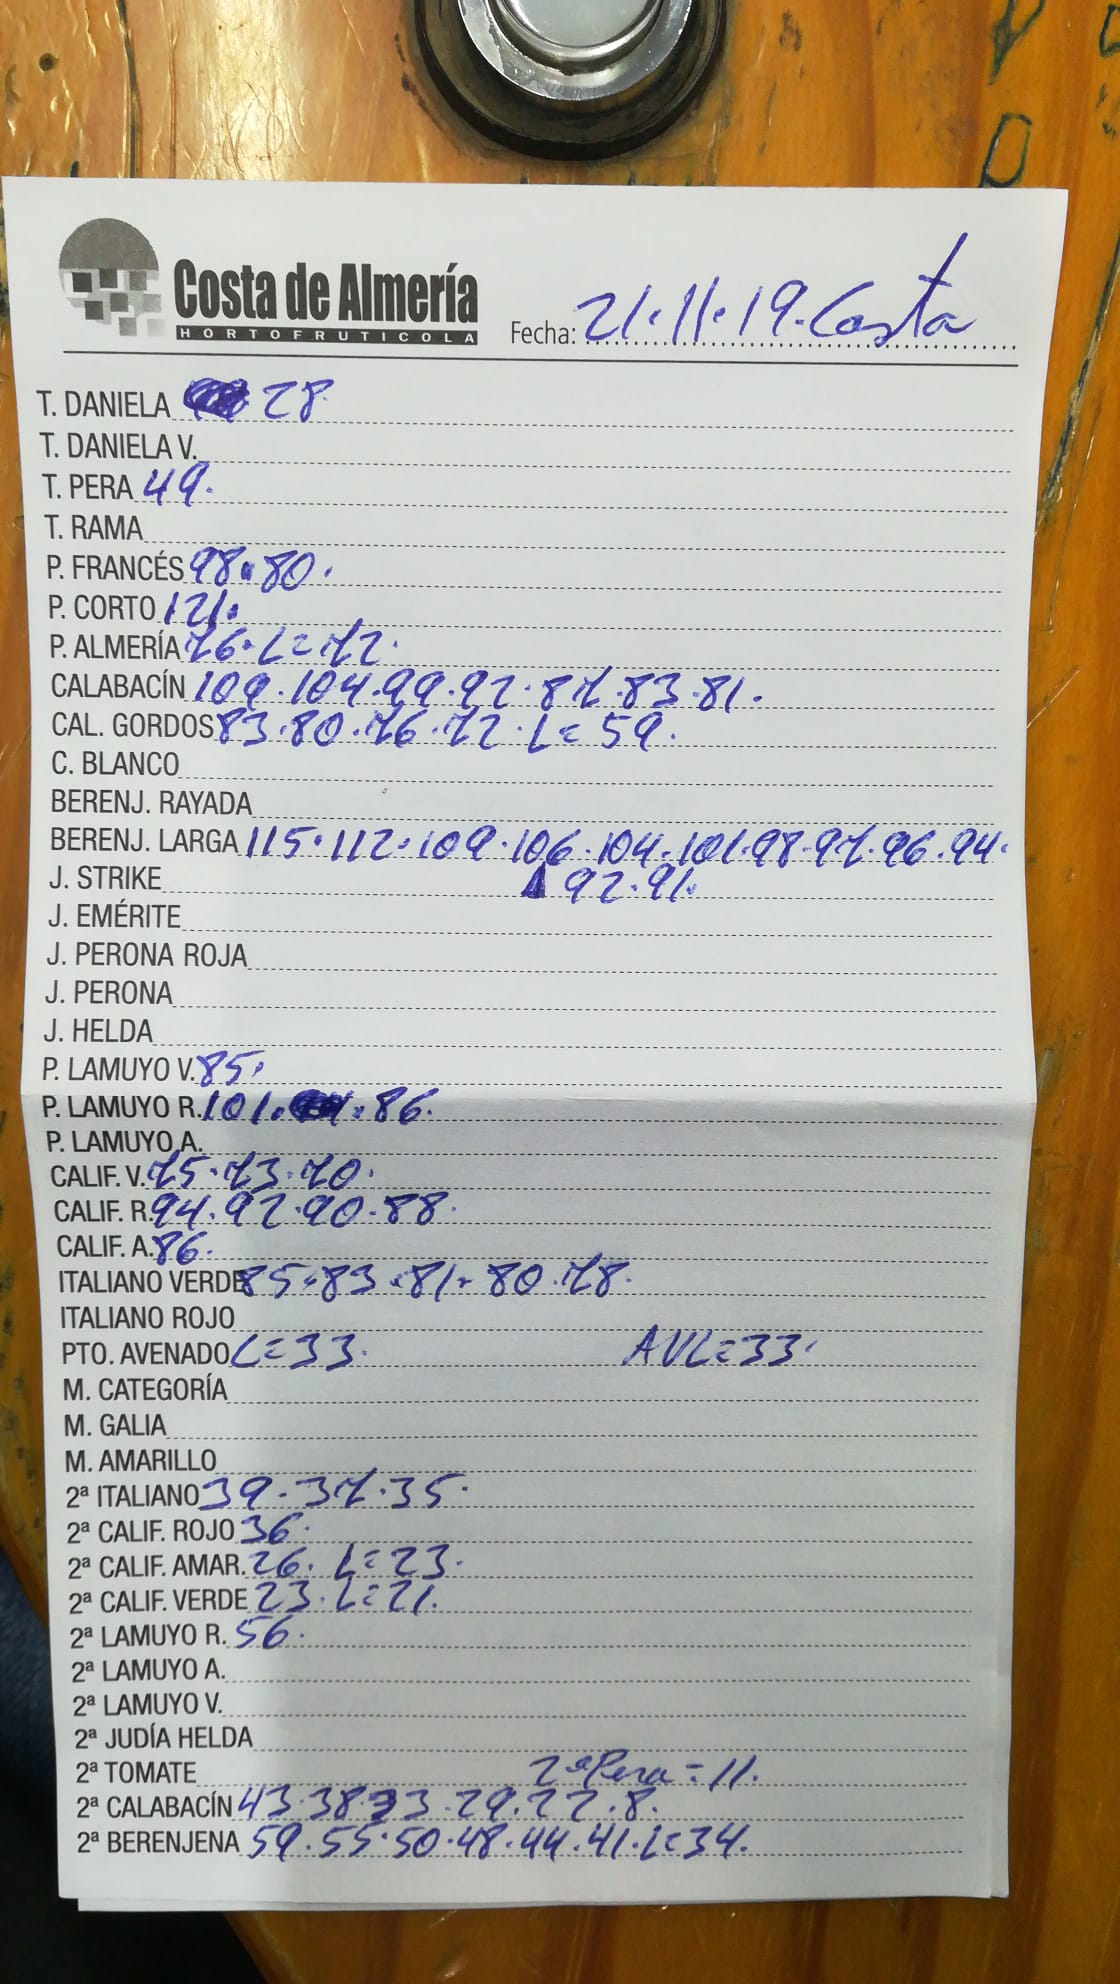 Costa de Almería
HORTOFRUTICOLA
Fecha: 21.11.19. Costa
T. DANIELA 28.
T. DANIELA V.
T. PERA 49.
T. RAMA
P. FRANCÉS 98.80.
P. CORTO 121.
P. ALMERÍA 76. L=72.
CALABACÍN 109.104.99.92.87.83.81.
CAL. GORDOS 83.80.76.72. L=59.
C. BLANCO
BERENJ. RAYADA
BERENJ. LARGA 115.112.109.106.104.101.98.97.96.94.
J. STRIKE 92.91.
J. EMÉRITE
J. PERONA ROJA
J. PERONA
J. HELDA
P. LAMUYO V. 85.
P. LAMUYO R. 101. 86.
P. LAMUYO A.
CALIF. V. 75.73.70.
CALIF. R. 94.92.90.88.
CALIF. A. 86.
ITALIANO VERDE 85.83.81.80.78.
ITALIANO ROJO
PTO. AVENADO L=33. AVL=33.
M. CATEGORÍA
M. GALIA
M. AMARILLO
2ª ITALIANO 39.37.35.
2ª CALIF. ROJO 36.
2ª CALIF. AMAR. 26. L=23.
2ª CALIF. VERDE 23. L=21.
2ª LAMUYO R. 56.
2ª LAMUYO A.
2ª LAMUYO V.
2ª JUDÍA HELDA
2ª TOMATE 2ª Pera=11.
2ª CALABACÍN 43.38 33.29.22.8.
2ª BERENJENA 59.55.50.48.44.41. L=34.